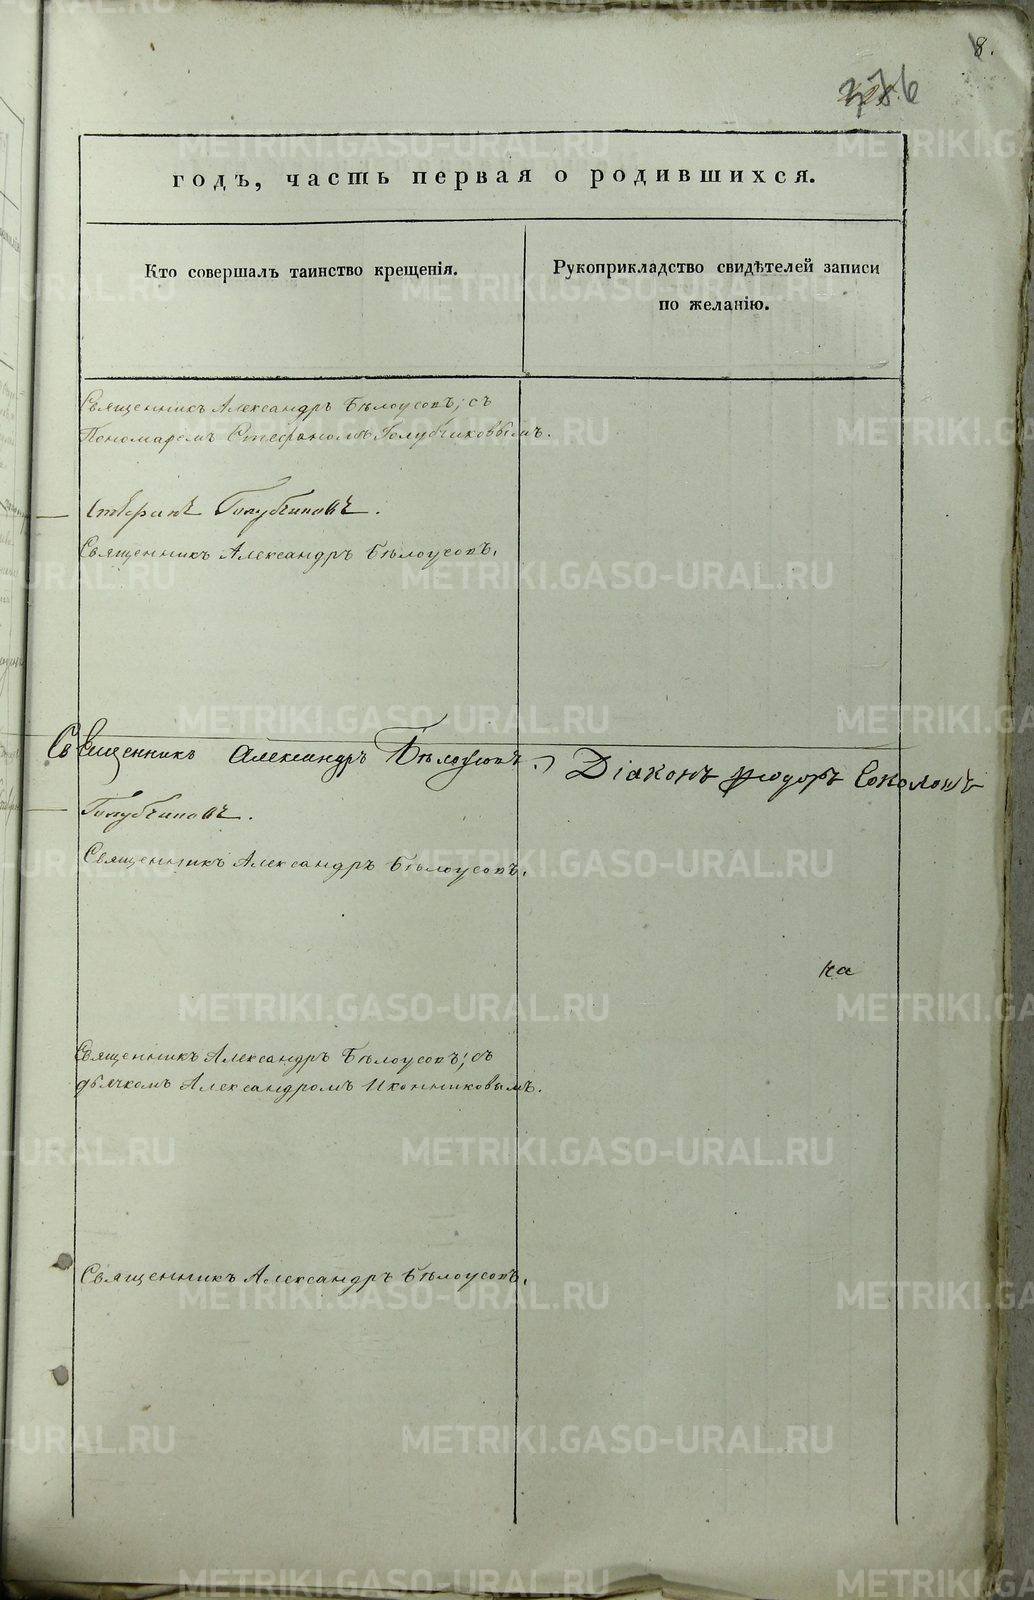 8.
376
годъ, часть первая о родившихся.
Кто совершалъ таинство крещенія.
Рукоприкладство свидѣтелей записи
по желанію.
Священникъ Александръ Бѣлоусовъ; съ
Пономаремъ Стефаномъ Голубчиковымъ.
Стефанъ Голубчиковъ.
Священникъ Александръ Бѣлоусовъ.
Священникъ Александръ Бѣлоусовъ.
Діаконъ Ѳеодоръ Соколовъ
Голубчиковъ.
Священникъ Александръ Бѣлоусовъ.
ка
Священникъ Александръ Бѣлоусовъ; съ
дьячкомъ Александромъ Иконниковымъ.
Священникъ Александръ Бѣлоусовъ.
METRIKI.GASO-URAL.RU